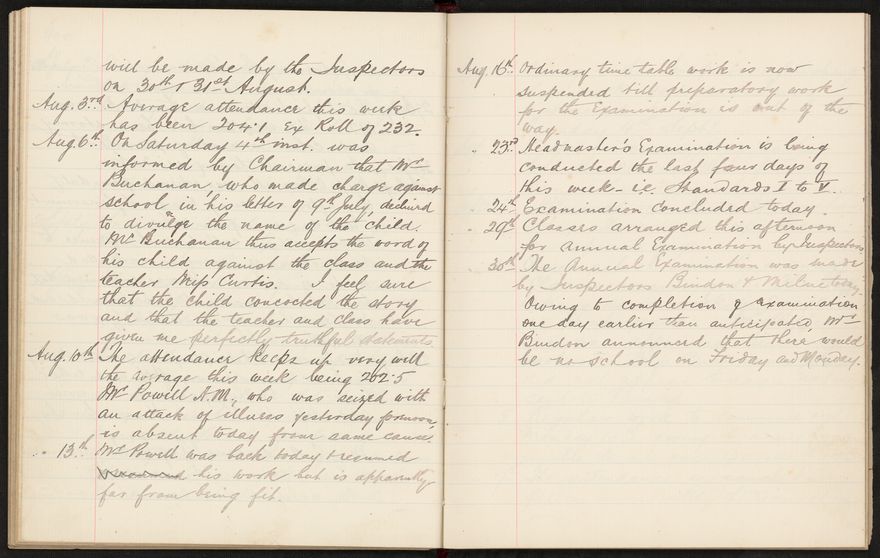 will be made by the Inspectors
on 30th & 31st August.
Aug. 3rd Average attendance this week
has been 204·1 Ex Roll of 232.
Aug. 6th On Saturday 4th inst. was
informed by Chairman that Mr
Buchanan, who made charge against
school in his letter of 9th July, declined
to divulge the name of the child.
Mr Buchanan thus accepts the word of
his child against the class and the
teacher Miss Curtis. I feel sure
that the child concocted the story
and that the teacher and class have
given me perfectly truthful statements.
Aug. 10th The attendance keeps up very well
the average this week being 202·5
Mr Powell A.M., who was seized with
an attack of illness yesterday forenoon,
is absent today from same cause.
" 13th Mr Powell was back today & resumed
his work but is apparently
far from being fit.
Aug. 16th Ordinary time table work is now
suspended till preparatory work
for the Examination is out of the
way.
" 23rd Headmaster's Examination is being
conducted the last four days of
this week - i.e. Standards I to V.
" 24th Examination concluded today.
" 29th Classes arranged this afternoon
for Annual Examination by Inspectors
" 30th The Annual Examination was made
by Inspectors Bindon & Milne today.
Owing to completion of examination
one day earlier than anticipated, Mr
Bindon announced that there would
be no school on Friday and Monday.